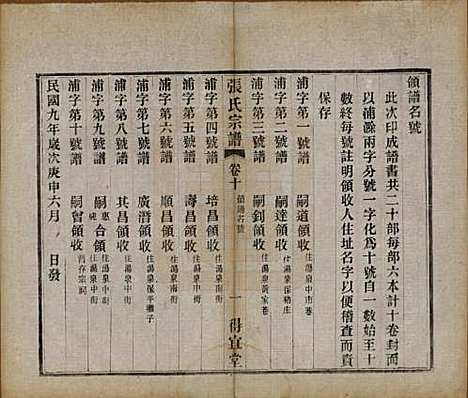 領譜名號
此次印成譜書共二十部每部六本計十卷封面
以浦滁兩字分號一字化為十號自一數始至十
數終每號註明領收人住址名字以便稽查而責
保存
浦字第一號譜 嗣道領收 住湯泉中市巷
浦字第二號譜 嗣達領收 住湯泉保豬庄
浦字第三號譜 嗣釗領收 住湯泉黃家巷
張氏宗譜 卷十 領譜名號 一 得宜堂
浦字第四號譜 培昌領收 住湯泉中街
浦字第五號譜 濤昌領收 住湯泉南街
浦字第六號譜 順昌領收 住湯泉南街
浦字第七號譜 廣潛領收 住湯泉保平橋子
浦字第八號譜 其昌領收 住湯泉中街
浦字第九號譜 嗣惠純合領 住湯泉中街
浦字第十號譜 嗣會領收 尚存宗祠
民國九年歲次庚申六月 日發